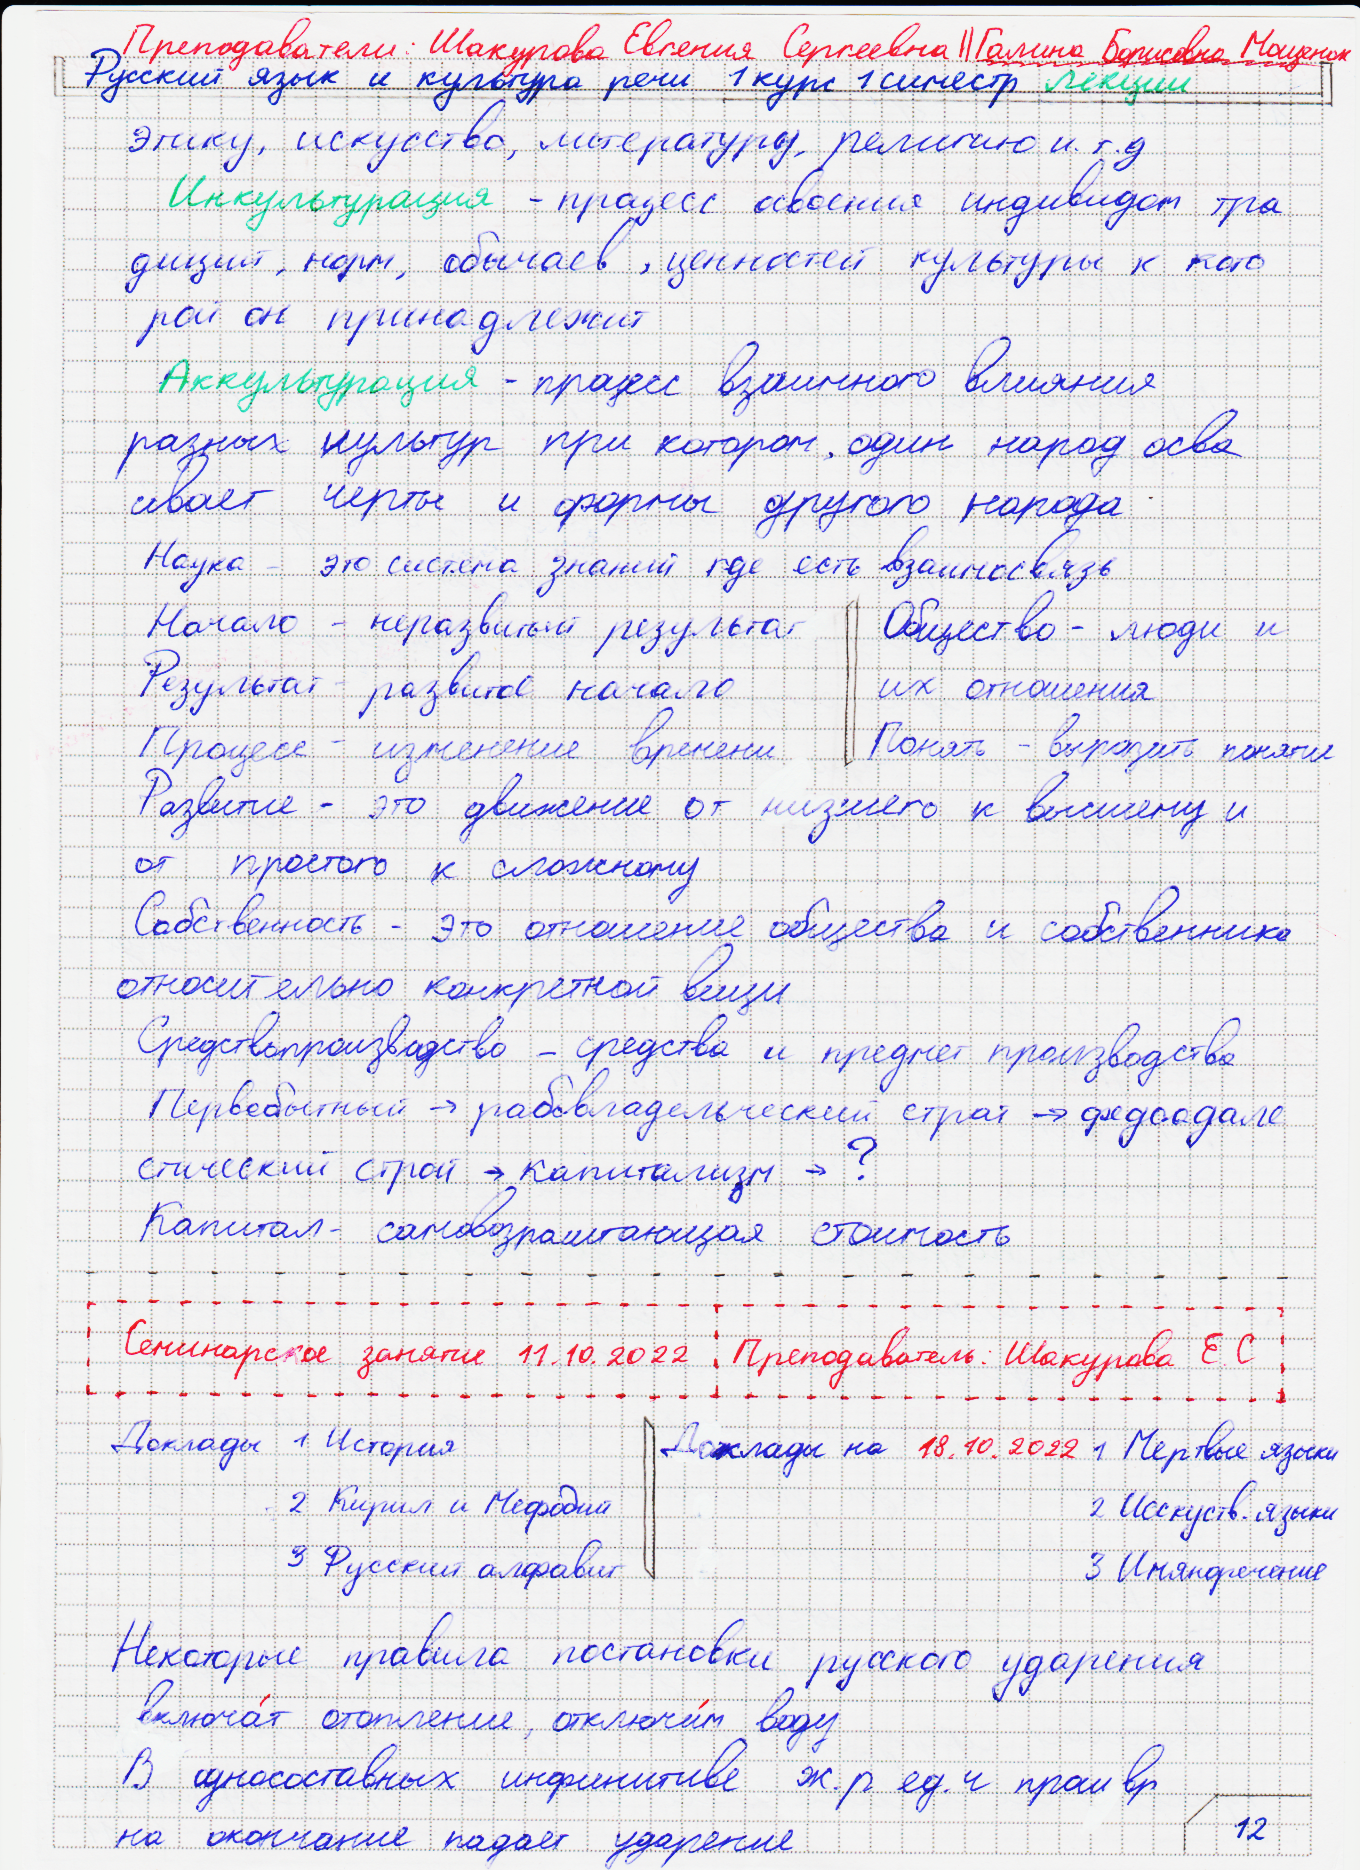 Преподаватели: Шакурова Евгения Сергеевна || Галина Борисовна Мощенок
Русский язык и культура речи 1 курс 1 симестр лекции
этику, искусство, литературу, религию и.т.д
Инкультурация - процесс освоения индивидом тра
диций, норм, обычаев, ценностей культуры к кото
рой он принадлежит
Аккультурация - процесс взаимного влияния
разных культур при котором, один народ осва
ивает черты и формы другого народа
Наука - это система знаний где есть взаимосвязь
Начало - неразвитый результат
Результат - развитое начало
Процесс - изменение времени
Общество - люди и
их отношения
Понять - выразить понятие
Развитие - это движение от низшего к высшему и
от простого к сложному
Собственность - это отношение общества и собственника
относительно конкретной вещи
Средствапроизводство - средства и предмет производства
Первобытный → рабовладельческий строй → федоодале
стический строй → капитализм → ?
Капитал - самовозраштающая стоимость
Семинарское занятие 11.10.2022 Преподаватель: Шакурова Е.С
Доклады 1 История
2 Кирил и Мефодий
3 Русский алфавит
Доклады на 18.10.2022 1 Мертвые языки
2 Исскуств. языки
3 Имянаречение
Некоторые правила постановки русского ударения
включа́т отопление, отключи́м воду
В односоставных инфинитиве ж.р ед.ч прош вр
на окончание падает ударение
12